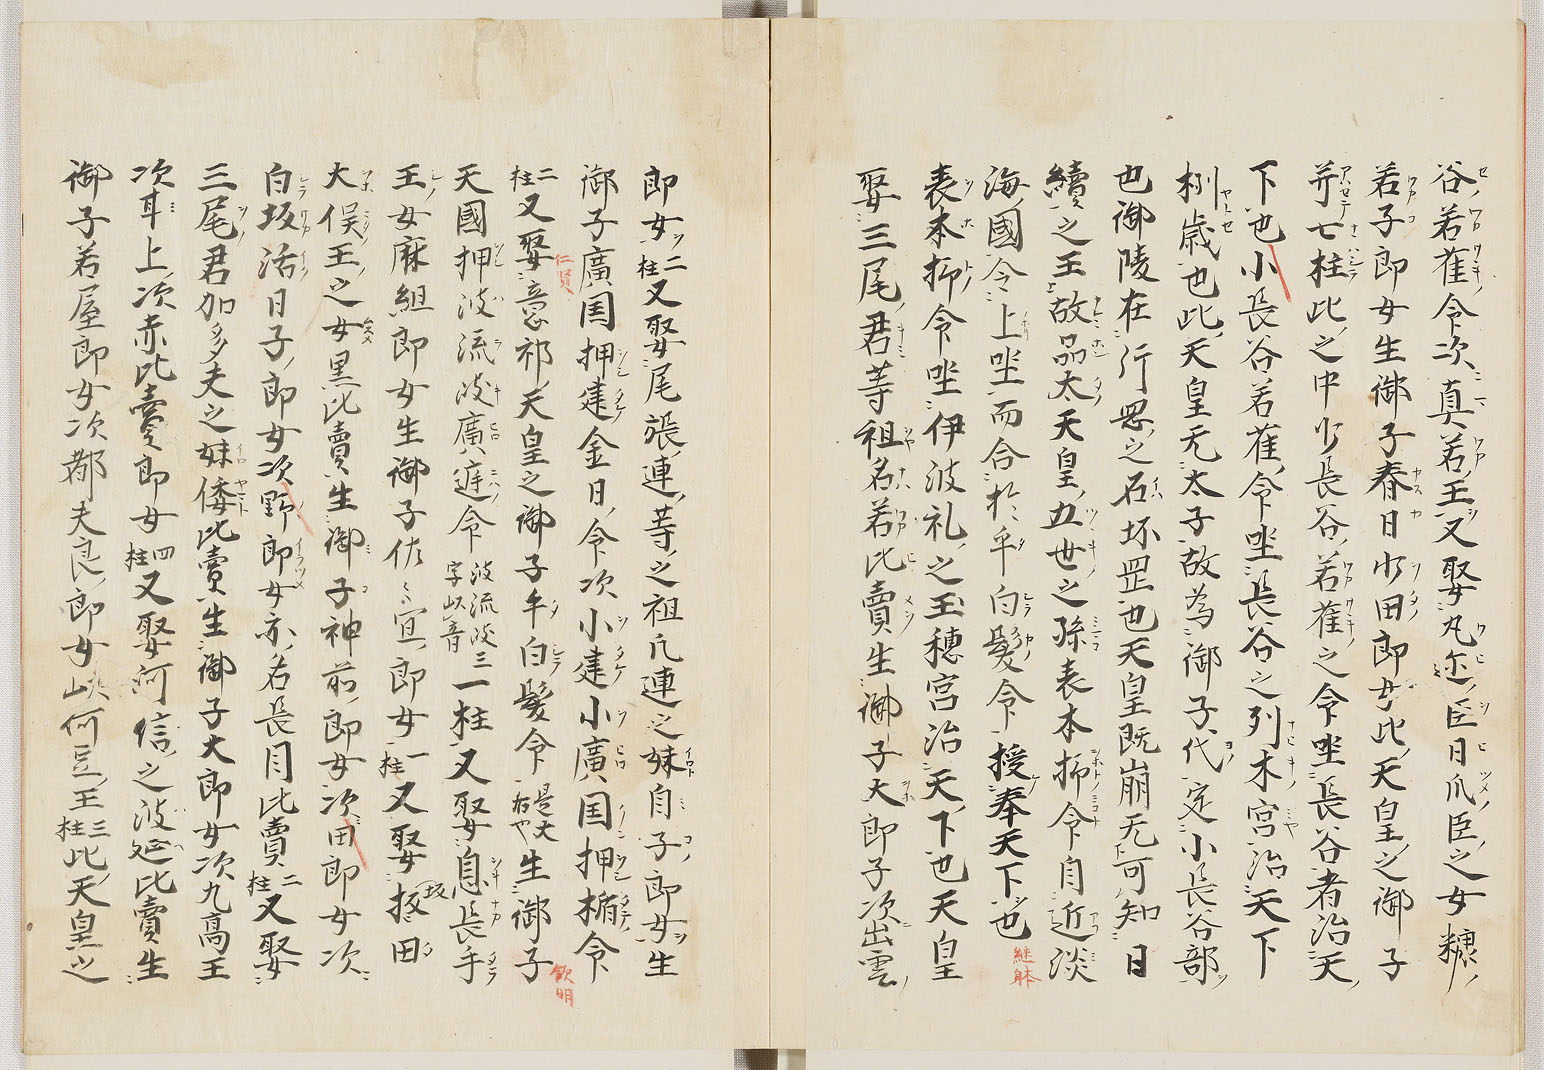 谷若雀令次真若王又娶丸迩臣日爪臣之女糠
若子郎女生御子春日少田郎女此天皇之御子
并七柱此之中少長谷若雀之令坐長谷者治天
下也小長谷若雀令坐長谷之列木宮治天下
捌歳也此天皇无太子故為御子代定小長谷部
也御陵在行罡之石坏罡也天皇既崩无可知日
續之王故品太天皇五世之孫袁本抒令自近淡
海國令上坐而合於手白髮令授奉天下也
継躰
袁本抒令坐伊波礼之玉穂宮治天下也天皇
娶三尾君等祖名若比賣生御子大郎子次出雲
郎女二柱又娶尾張連等之祖凡連之妹自子郎女生
御子廣国押建金日令次小建小廣国押楯令
仁賢
二柱又娶意祁天皇之御子手白髮令是大右や生御子
欽明
天國押波流岐廣庭令波流岐三字以音一柱又娶息長手
王女麻組郎女生御子佐々宜郎女一柱又娶坂田
大俣王之女黒比賣生御子神前郎女次田郎女次
白坂活日子郎女次野郎女亦名長目比賣二柱又娶
三尾君加多夫之妹倭比賣生御子大郎女次丸高王
次耳上次赤比賣郎女四柱又娶阿信之波延比賣生
御子若屋郎女次都夫良郎女次阿豆王三柱此天皇之